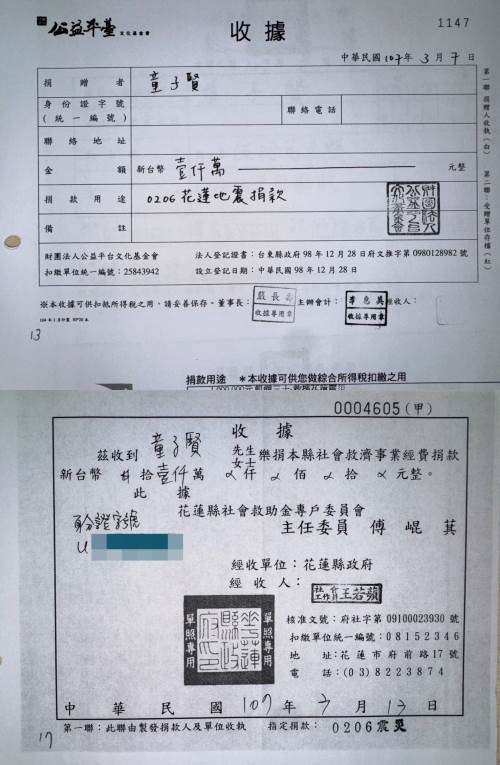 公益平臺 文化基金會
收據
1147
中華民國 107 年 3 月 7 日
捐贈者 童子賢
身份證字號
(統一編號)
聯絡電話
聯絡地址
金額 新台幣 壹仟萬 元整
捐款用途 0206花蓮地震捐款
備註
財團法人公益平台文化基金會 法人登記證書:台東縣政府 98 年 12 月 28 日府文推字第 0980128982 號
扣繳單位統一編號:25843942 設立登記日期:中華民國 98 年 12 月 28 日
※本收據可供扣抵所得稅之用,請妥善保存。董事長: 嚴長壽 收據專用章 主辦會計: 收據專用章 經收人:
第一聯 捐贈人收執(白) 第二聯:受贈單位存檔(紅)
13
捐款用途 *本收據可供您做綜合所得稅扣繳之用
0004605(甲)
收據
茲收到 童子賢 先生女士 樂捐本縣社會救濟事業經費捐款
新台幣 拾壹仟萬 仟 佰 拾 元整。
此據
花蓮縣社會救助金專戶委員會
身分證字號
主任委員 傅崐萁
U
經收單位:花蓮縣政府
經收人: 社工 王若蘋
單照專用 單照專用
核准文號:府社字第 09100023930 號
扣繳單位統一編號:08152346
地址:花蓮市府前路17號
電話:(03)8223874
中華民國 107 年 3 月 13 日
第一聯:此聯由製發捐款人及單位收執 指定捐款: 0206震災
17